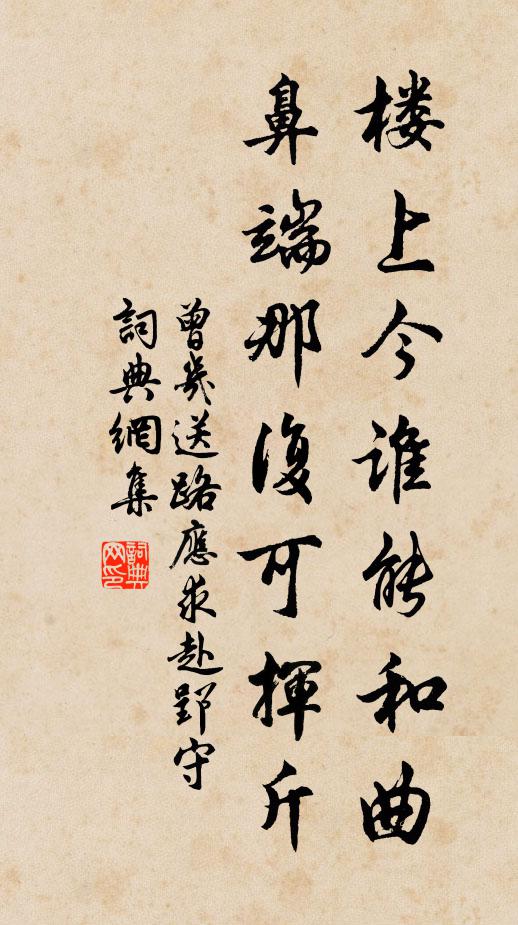 楼上今谁能和曲
鼻端那復可揮斤
曾幾送路應求赴郢守
詞典網集
詞典网印